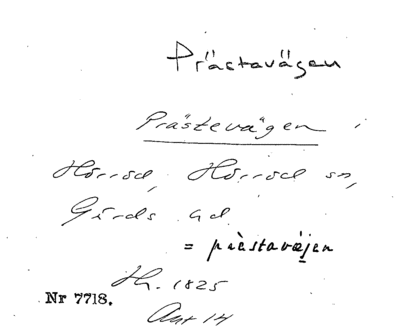 Prästavägen
Prästevägen i
Hörröd, Hörröd sn,
Gärds hd
= prästavä̱jen
Hs. 1825
Akt 14
Nr 7718.